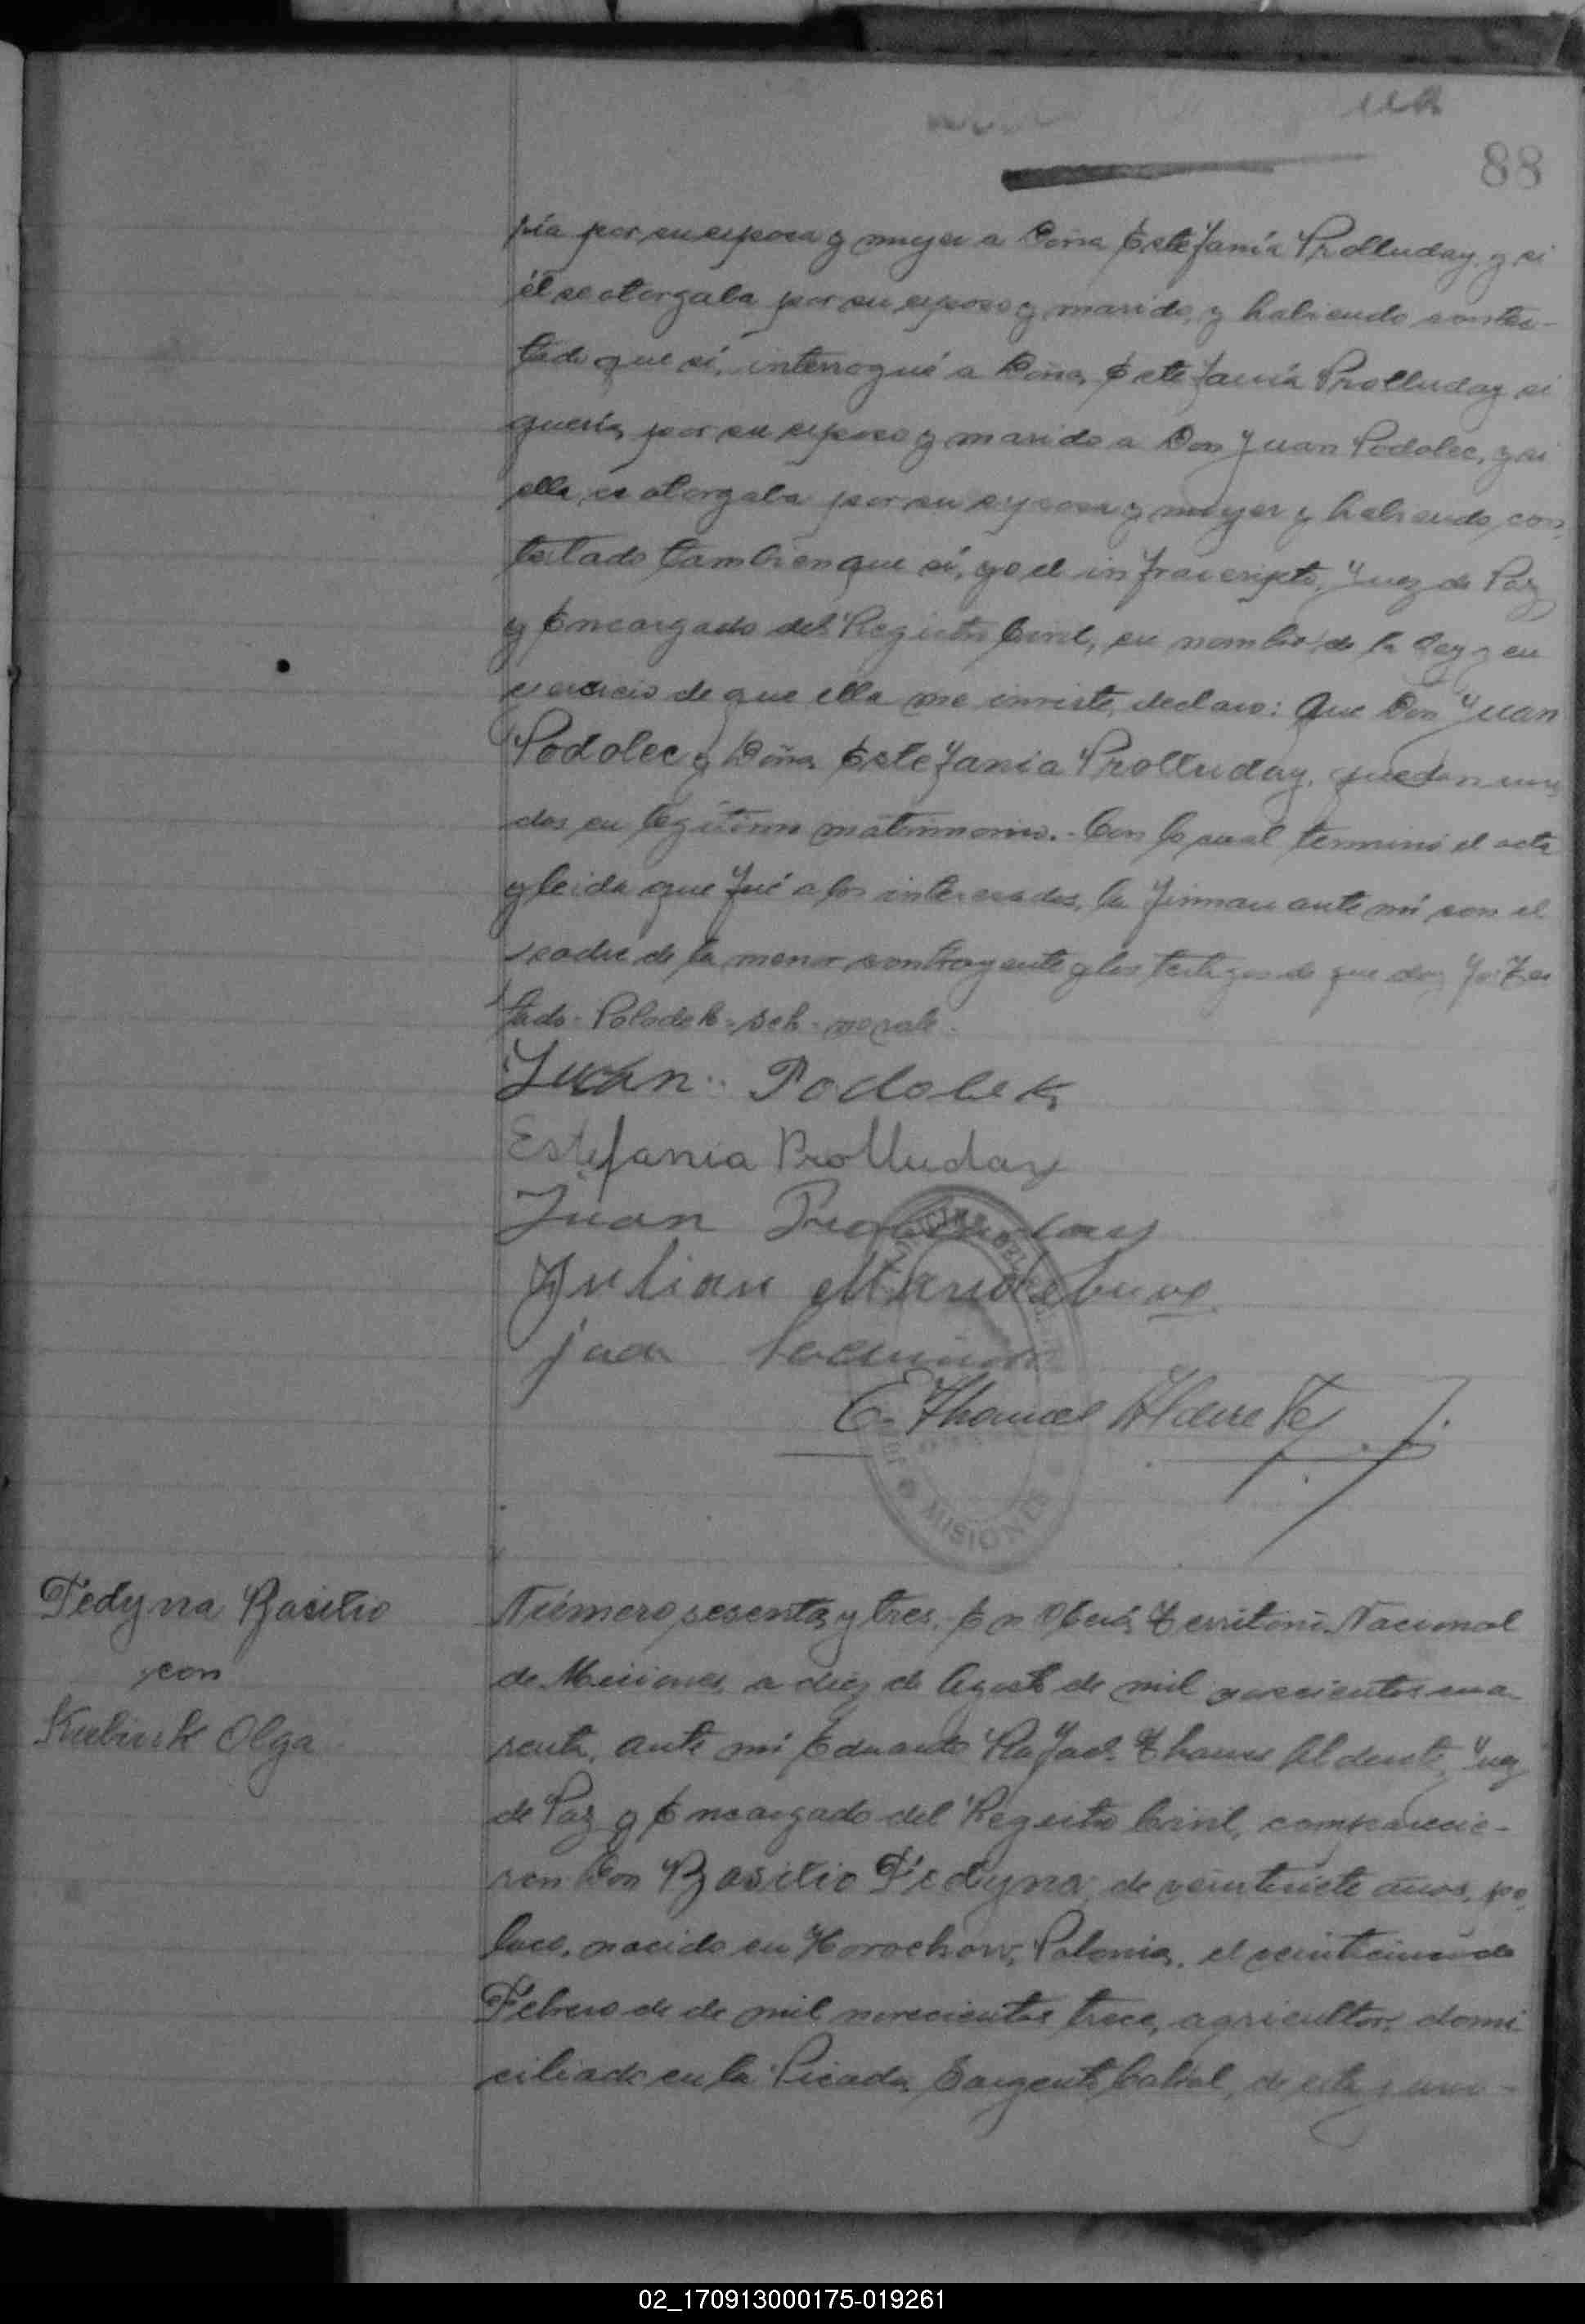 88
ría por su esposa y mujer a Doña Estefanía Prolluday, y si
él se otorgaba por su esposo y marido, y habiendo contes-
tado que sí, interrogué a Doña Estefanía Prolluday si
quería por su esposo y marido a Don Juan Podolec, y si
ella se otorgaba por su esposa y mujer y habiendo con
testado tambien que sí, yo el infrascripto, Juez de Paz
y Encargado del Registro Civil, en nombre de la Ley y en
ejercicio de que ella me inviste, declaro: Que Don Juan
Podolec y Doña Estefania Prolluday, quedan uni
dos en legítimo matrimonio.- Con lo cual terminó el acta
y leida que fué a los interesados, la firman ante mí, con el
padre de la menor contrayente y los testigos de que doy fe. Tes
tado - - no vale.
Juan Podolek
Estefania Prolluday
Juan
Julian
juan
E. Thames Alderete
MISIONES
Fedyna Basilio
con
Kubiuk Olga
Número sesenta y tres. En Oberá, Territorio Nacional
de Misiones, a diez de Agosto de mil novecientos cua
renta, ante mí Eduardo Rafael Thames Alderete, Juez
de Paz y Encargado del Registro Civil, comparecie-
ron Don Basilio Fedyna, de veintisiete años, po
laco, nacido en Horochow, Polonia, el veinticinco de
Febrero de de mil novecientos trece, agricultor, domi
ciliado en la Picada Sargento Cabral, de esta
02_170913000175-019261